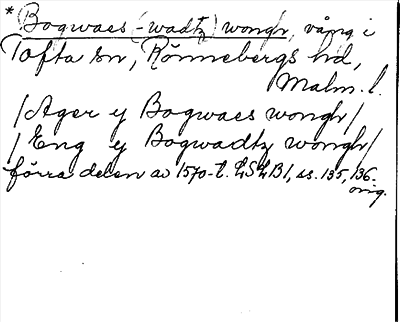 *Bogwaes (-wadtz) wongh, vång i
Tofta sn, Rönnebergs hd,
Malm. l.
/Ager y Bogwaes wongh/
/Eng y Bogwadtz wongh/
förra delen av 1570-t. LSLB1, ss. 135, 136.
orig.